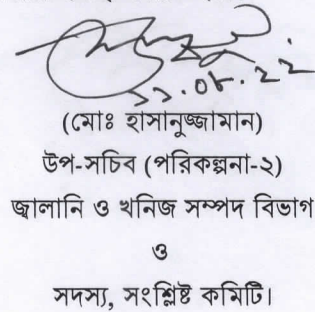 (মোঃ হাসানুজ্জামান)
উপ-সচিব (পরিকল্পনা-২)
জ্বালানি ও খনিজ সম্পদ বিভাগ
ও
সদস্য, সংশ্লিষ্ট কমিটি।